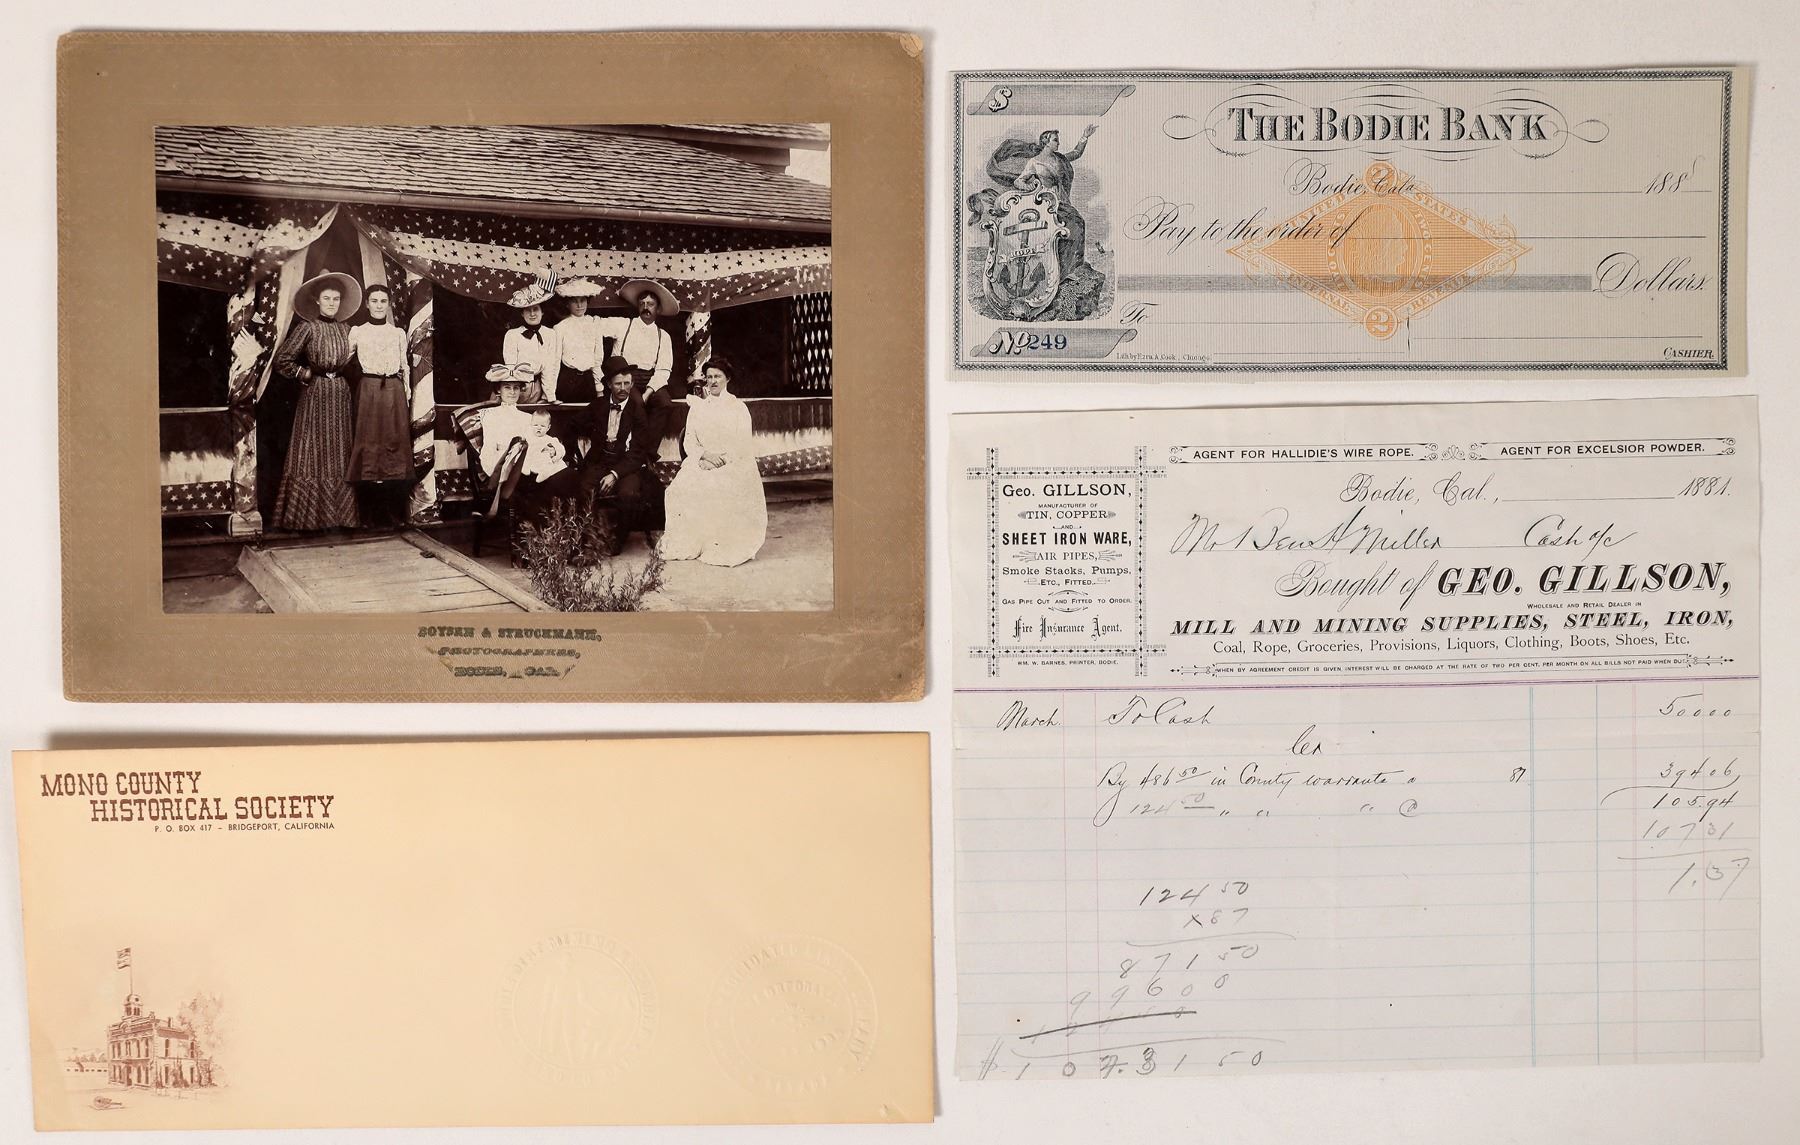 BOYSEN & STRUCKMANN,
PHOTOGRAPHERS,
BODIE, CAL.
$
THE BODIE BANK
Bodie, Cala 188
Pay to the order of
UNITED STATES
INTERNAL REVENUE
2
Dollars.
To
No 249
Lith by Ezra A. Cook, Chicago.
CASHIER
MONO COUNTY
HISTORICAL SOCIETY
P. O. BOX 417 - BRIDGEPORT, CALIFORNIA
AGENT FOR HALLIDIE'S WIRE ROPE.
AGENT FOR EXCELSIOR POWDER.
GEO. GILLSON,
MANUFACTURER OF
TIN, COPPER
AND
SHEET IRON WARE,
AIR PIPES,
Smoke Stacks, Pumps,
ETC., FITTED.
GAS PIPE CUT AND FITTED TO ORDER.
Fire Insurance Agent.
WM. W. BARNES, PRINTER, BODIE.
Bodie, Cal., 1881.
Mr Ben H Miller Cash a/c
Bought of GEO. GILLSON,
WHOLESALE AND RETAIL DEALER IN
MILL AND MINING SUPPLIES, STEEL, IRON,
Coal, Rope, Groceries, Provisions, Liquors, Clothing, Boots, Shoes, Etc.
WHEN BY AGREEMENT CREDIT IS GIVEN, INTEREST WILL BE CHARGED AT THE RATE OF TWO PER CENT. PER MONTH ON ALL BILLS NOT PAID WHEN DUE.
March. To Cash 50000
Cr
By 486 50 in County warrants a 87 39406
124 50 " " " @ 105.94
10731
1.37
124 50
x 87
87150
99600
$ 107.31 50